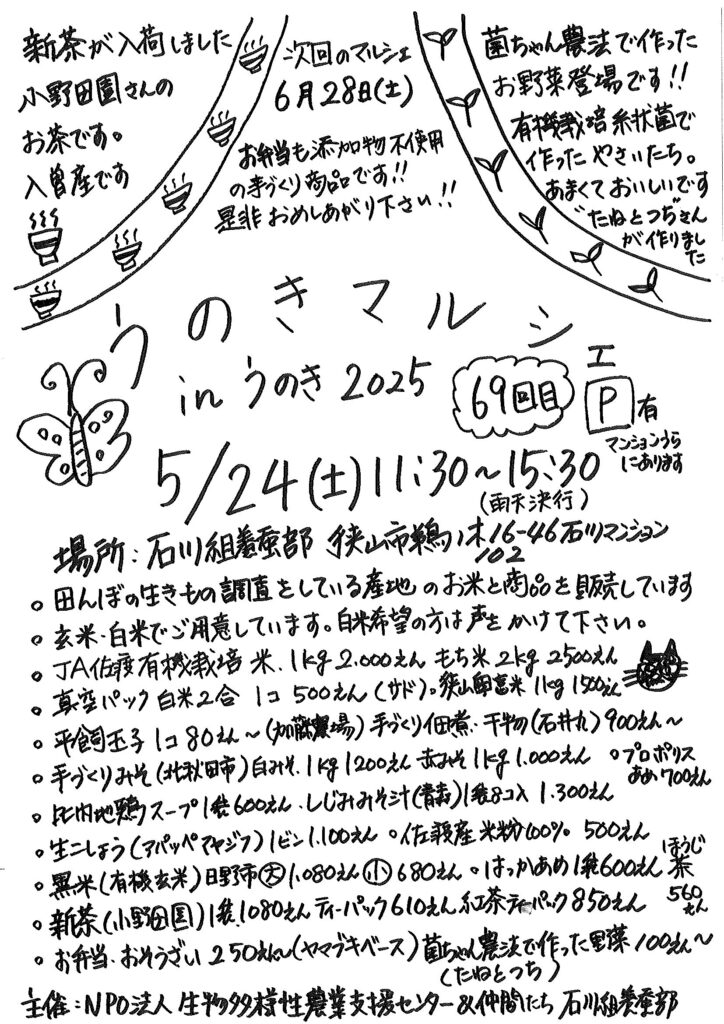 新茶が入荷しました
小野田園さんの
お茶です。
入曽産です
次回のマルシェ
6月28日(土)
お弁当も添加物不使用
の手づくり商品です!!
是非おめしあがり下さい!!
菌ちゃん農法で作った
お野菜登場です!!
有機栽培糸状菌で
作ったやさいたち。
あまくておいしいです
"たねとつぢ"さん
が作りました
うのきマルシェ
in うのき 2025
69回目
P 有
マンションうら
にあります
5/24(土)11:30~15:30
(雨天決行)
場所:石川組養蚕部 狭山市鵜ノ木16-46石川マンション
102
。田んぼの生きもの調査をしている産地のお米と商品を販売しています
。玄米・白米でご用意しています。白米希望の方は声をかけて下さい。
。JA佐渡有機栽培米.1kg 2.000えん もち米 2kg 2500えん
。真空パック白米2合 1コ 500えん(サド)。狭山 米1kg 1500えん
。平飼玉子 1コ 80えん~(加藤農場)手づくり佃煮・干物(石井丸)900えん~
。手づくりみそ(北秋田市)白みそ.1kg 1200えん 赤みそ1kg 1.000えん
。プロポリス
あめ700えん
。比内地鶏スープ1袋600えん.しじみみそ汁(青森)1袋8コ入 1.300えん
。生こしょう(アパッペマヤジフ)1ビン1.100えん 。佐渡産米粉100% 500えん
。黒米(有機玄米)日野市大1.080えん小680えん。はっかあめ1袋600えん
ほうじ
茶
560
えん
。新茶(小野田園)1袋.1080えんティーパック610えん紅茶ティーパック850えん
。お弁当.おそうざい 250えん~(ヤマブキベース)菌ちゃん農法で作った野菜100えん~
(たねとつち)
主催:NPO法人 生物多様性農業支援センター&仲間たち 石川組養蚕部